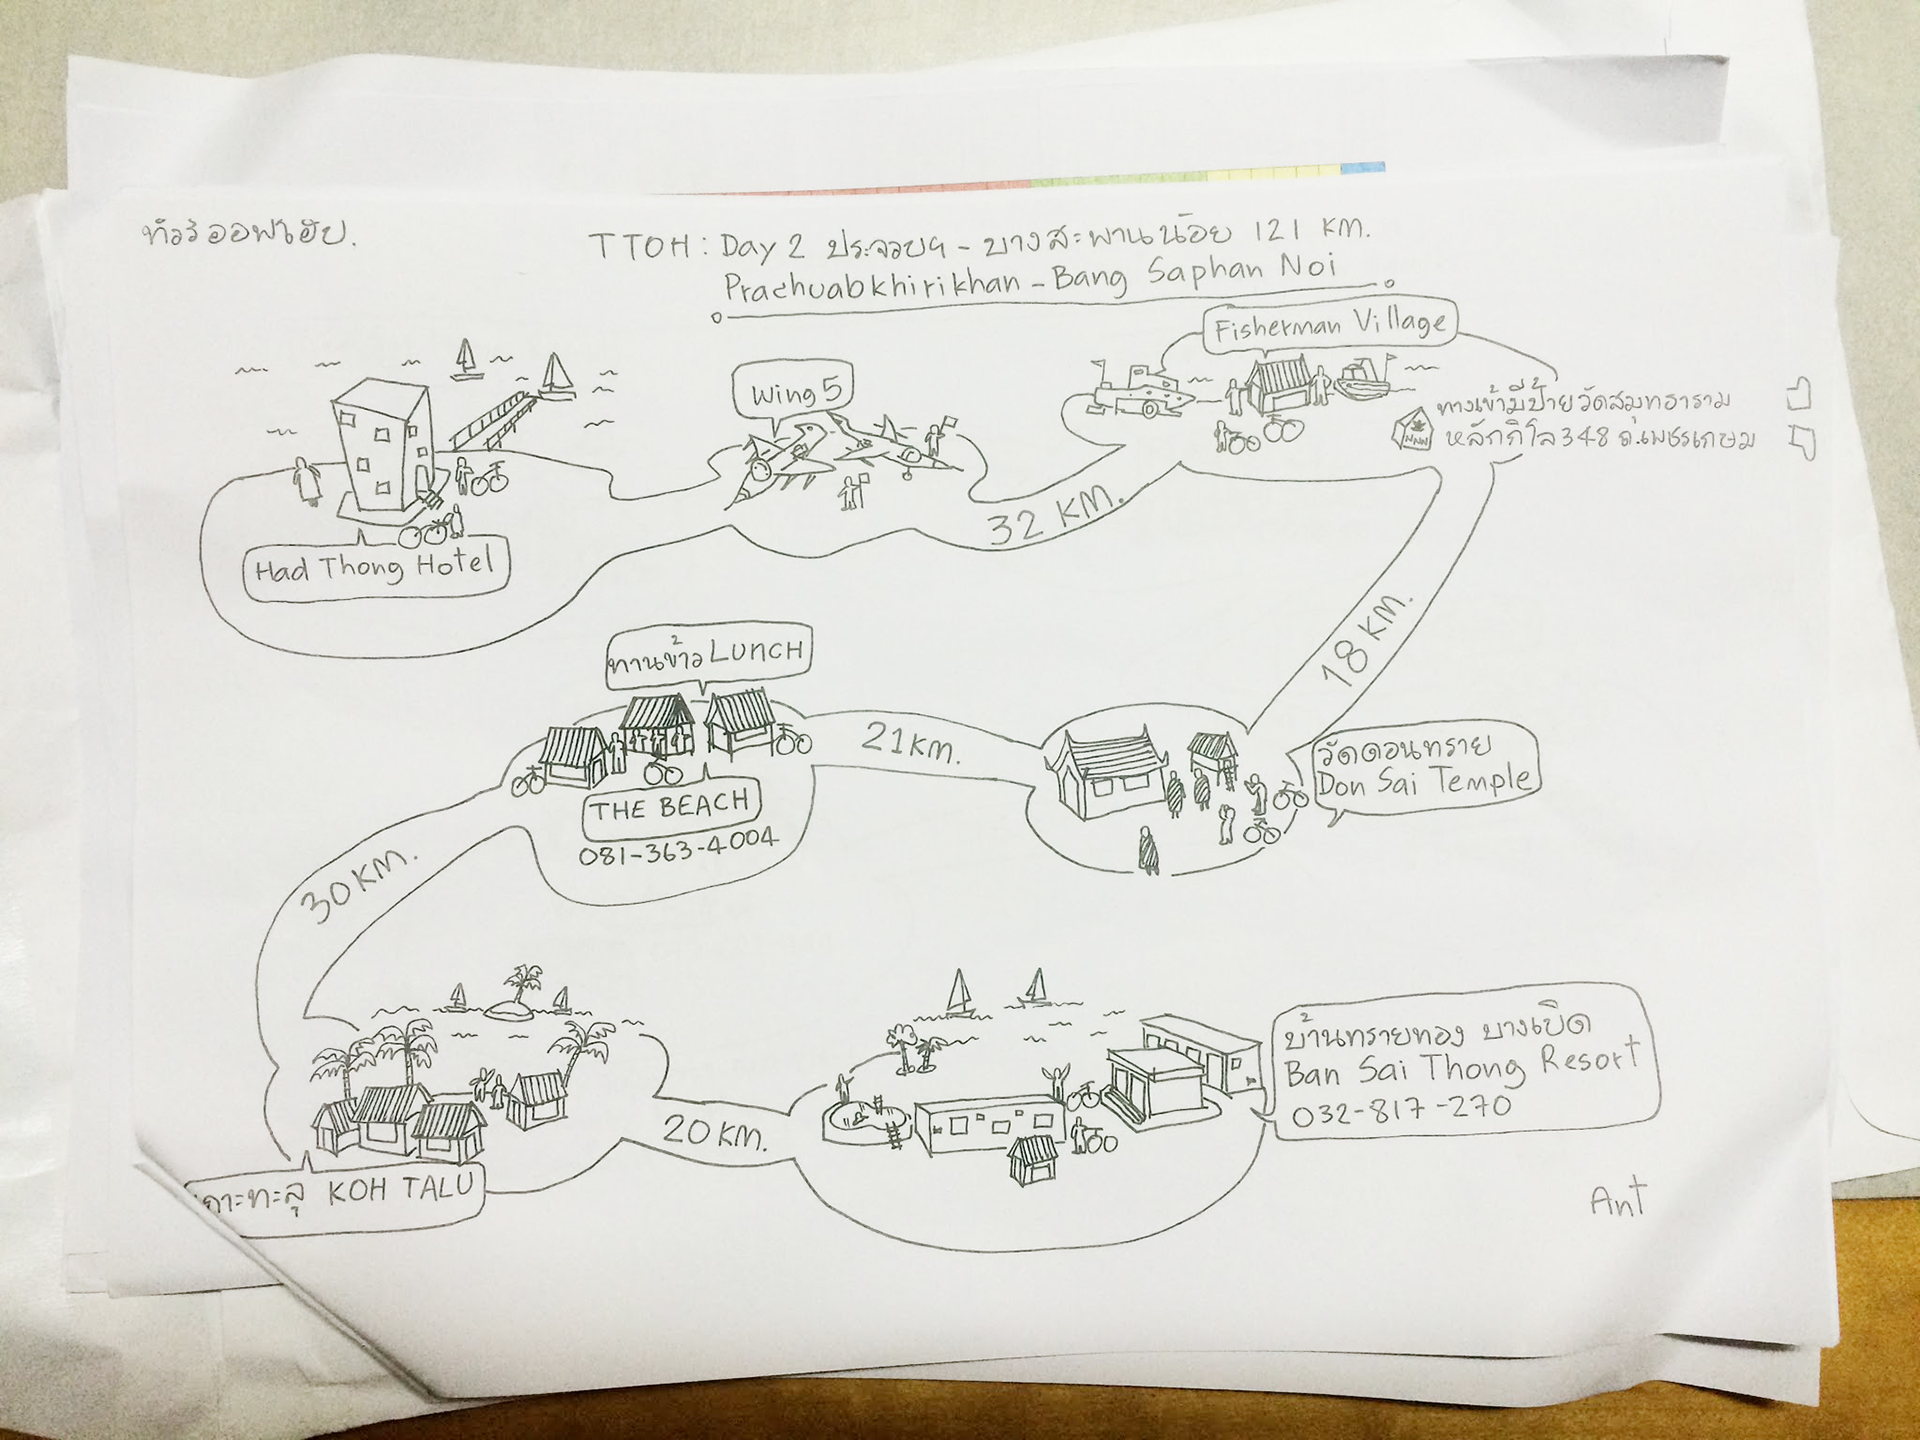 ทัวร์ออฟเฮีย.
TTOH: Day 2 ประจวบฯ - บางสะพานน้อย 121 KM.
Prachuabkhirikhan - Bang Saphan Noi
Fisherman Village
Wing 5
ทางเข้ามีป้ายวัดสมุทธาราม
หลักกิโล 348 ถ.เพชรเกษม
32 KM.
Had Thong Hotel
18 KM.
ทานข้าว LUNCH
21 KM.
วัดดอนทราย
Don Sai Temple
THE BEACH
081-363-4004
30 KM.
บ้านทรายทอง บางเบิด
Ban Sai Thong Resort
032-817-270
20 KM.
เกาะทะลุ KOH TALU
Ant